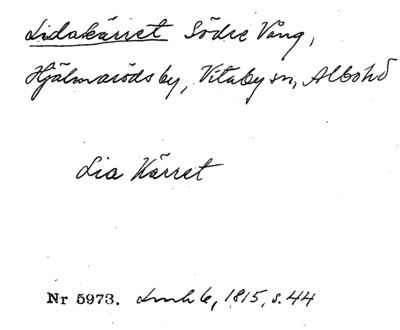 Lidakärret Södre Vång,
Hjälmaröds by, Vitaby sn, Albo hd
Lia Kärret
Nr 5973. Lmh 6, 1815, s. 44